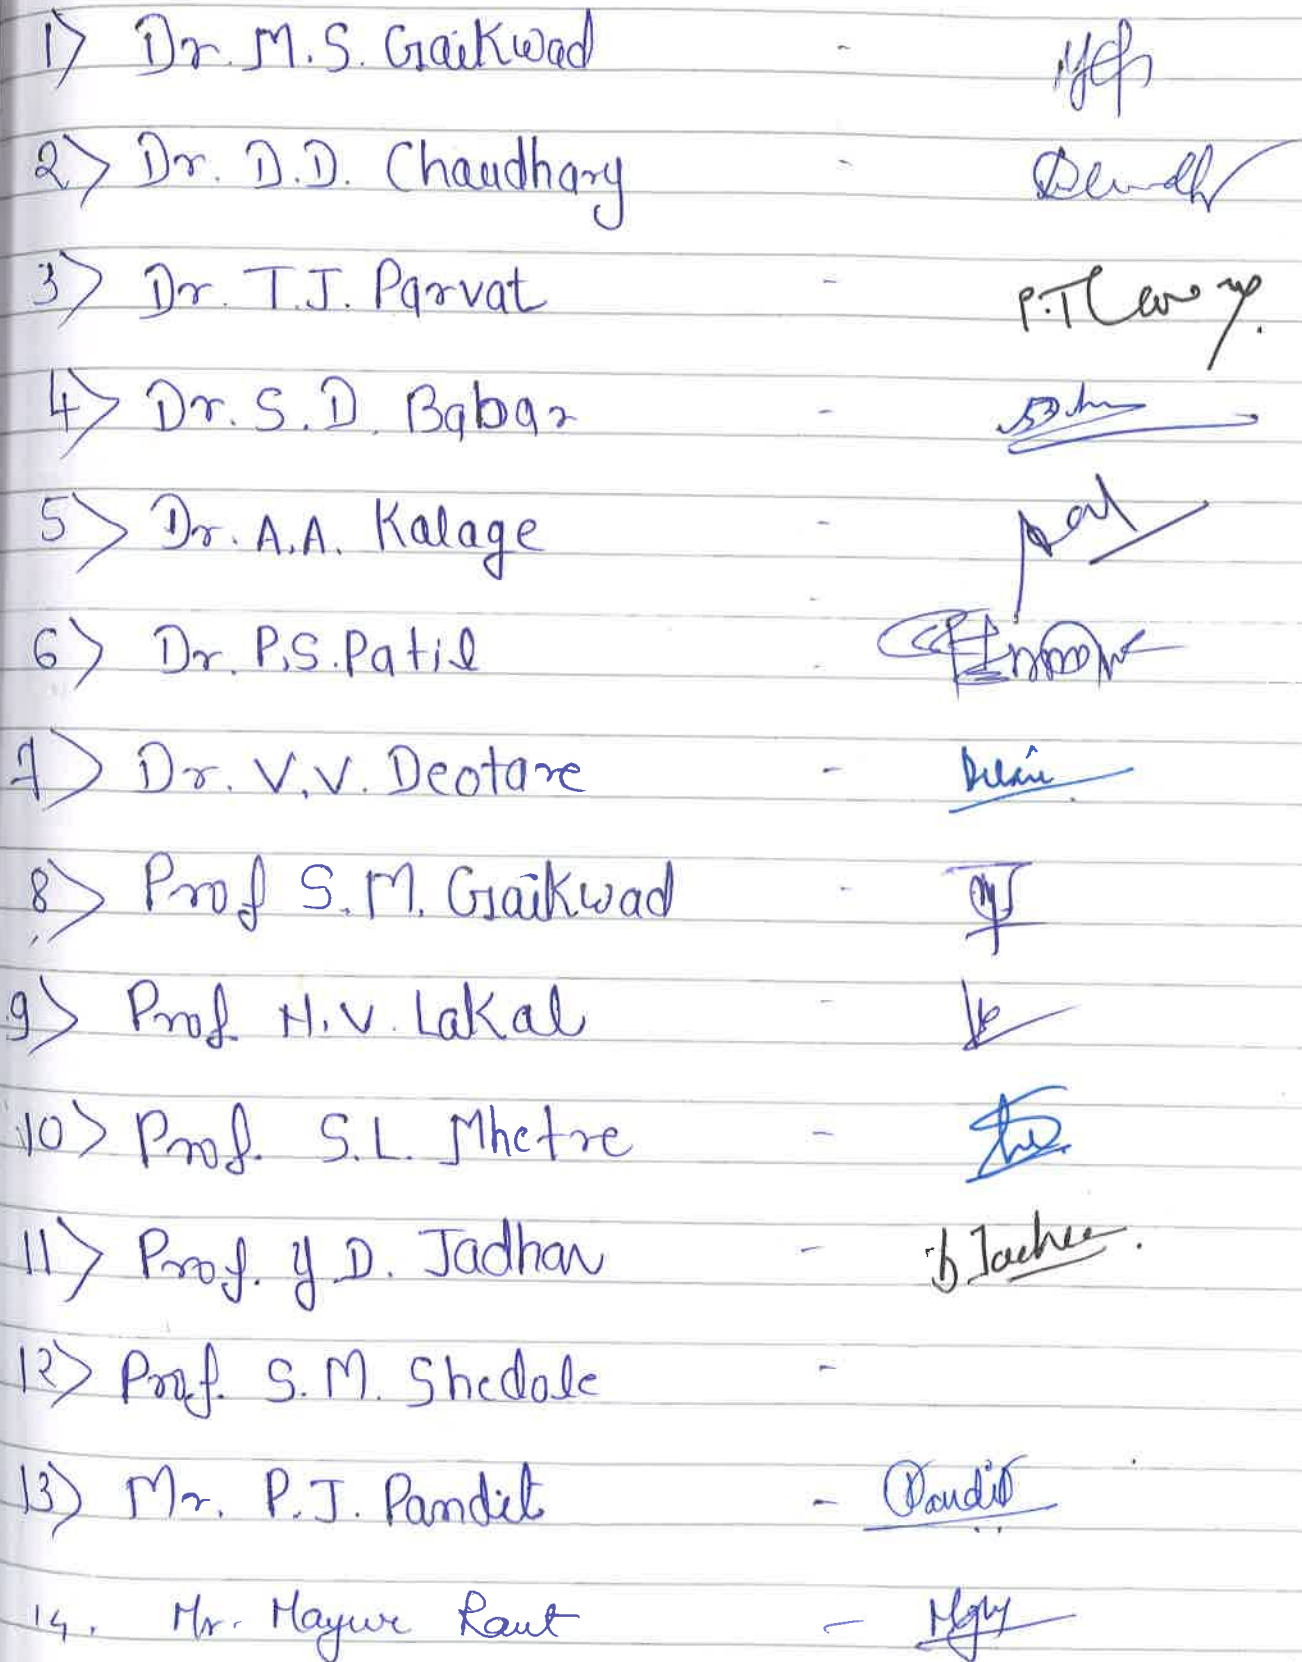 1> Dr. M.S. Gaikwad -
2> Dr. D.D. Chaudhary -
3> Dr. T.J. Parvat -
4> Dr. S.D. Babar -
5> Dr. A.A. Kalage -
6> Dr. P.S. Patil -
7> Dr. V.V. Deotare -
8> Prof S.M. Gaikwad -
9> Prof. H.V. Lakal -
10> Prof. S.L. Mhetre -
11> Prof. Y.D. Jadhav -
12> Prof. S.M. Shedole -
13> Mr. P.J. Pandit - Pandit
14. Mr. Mayur Raut -